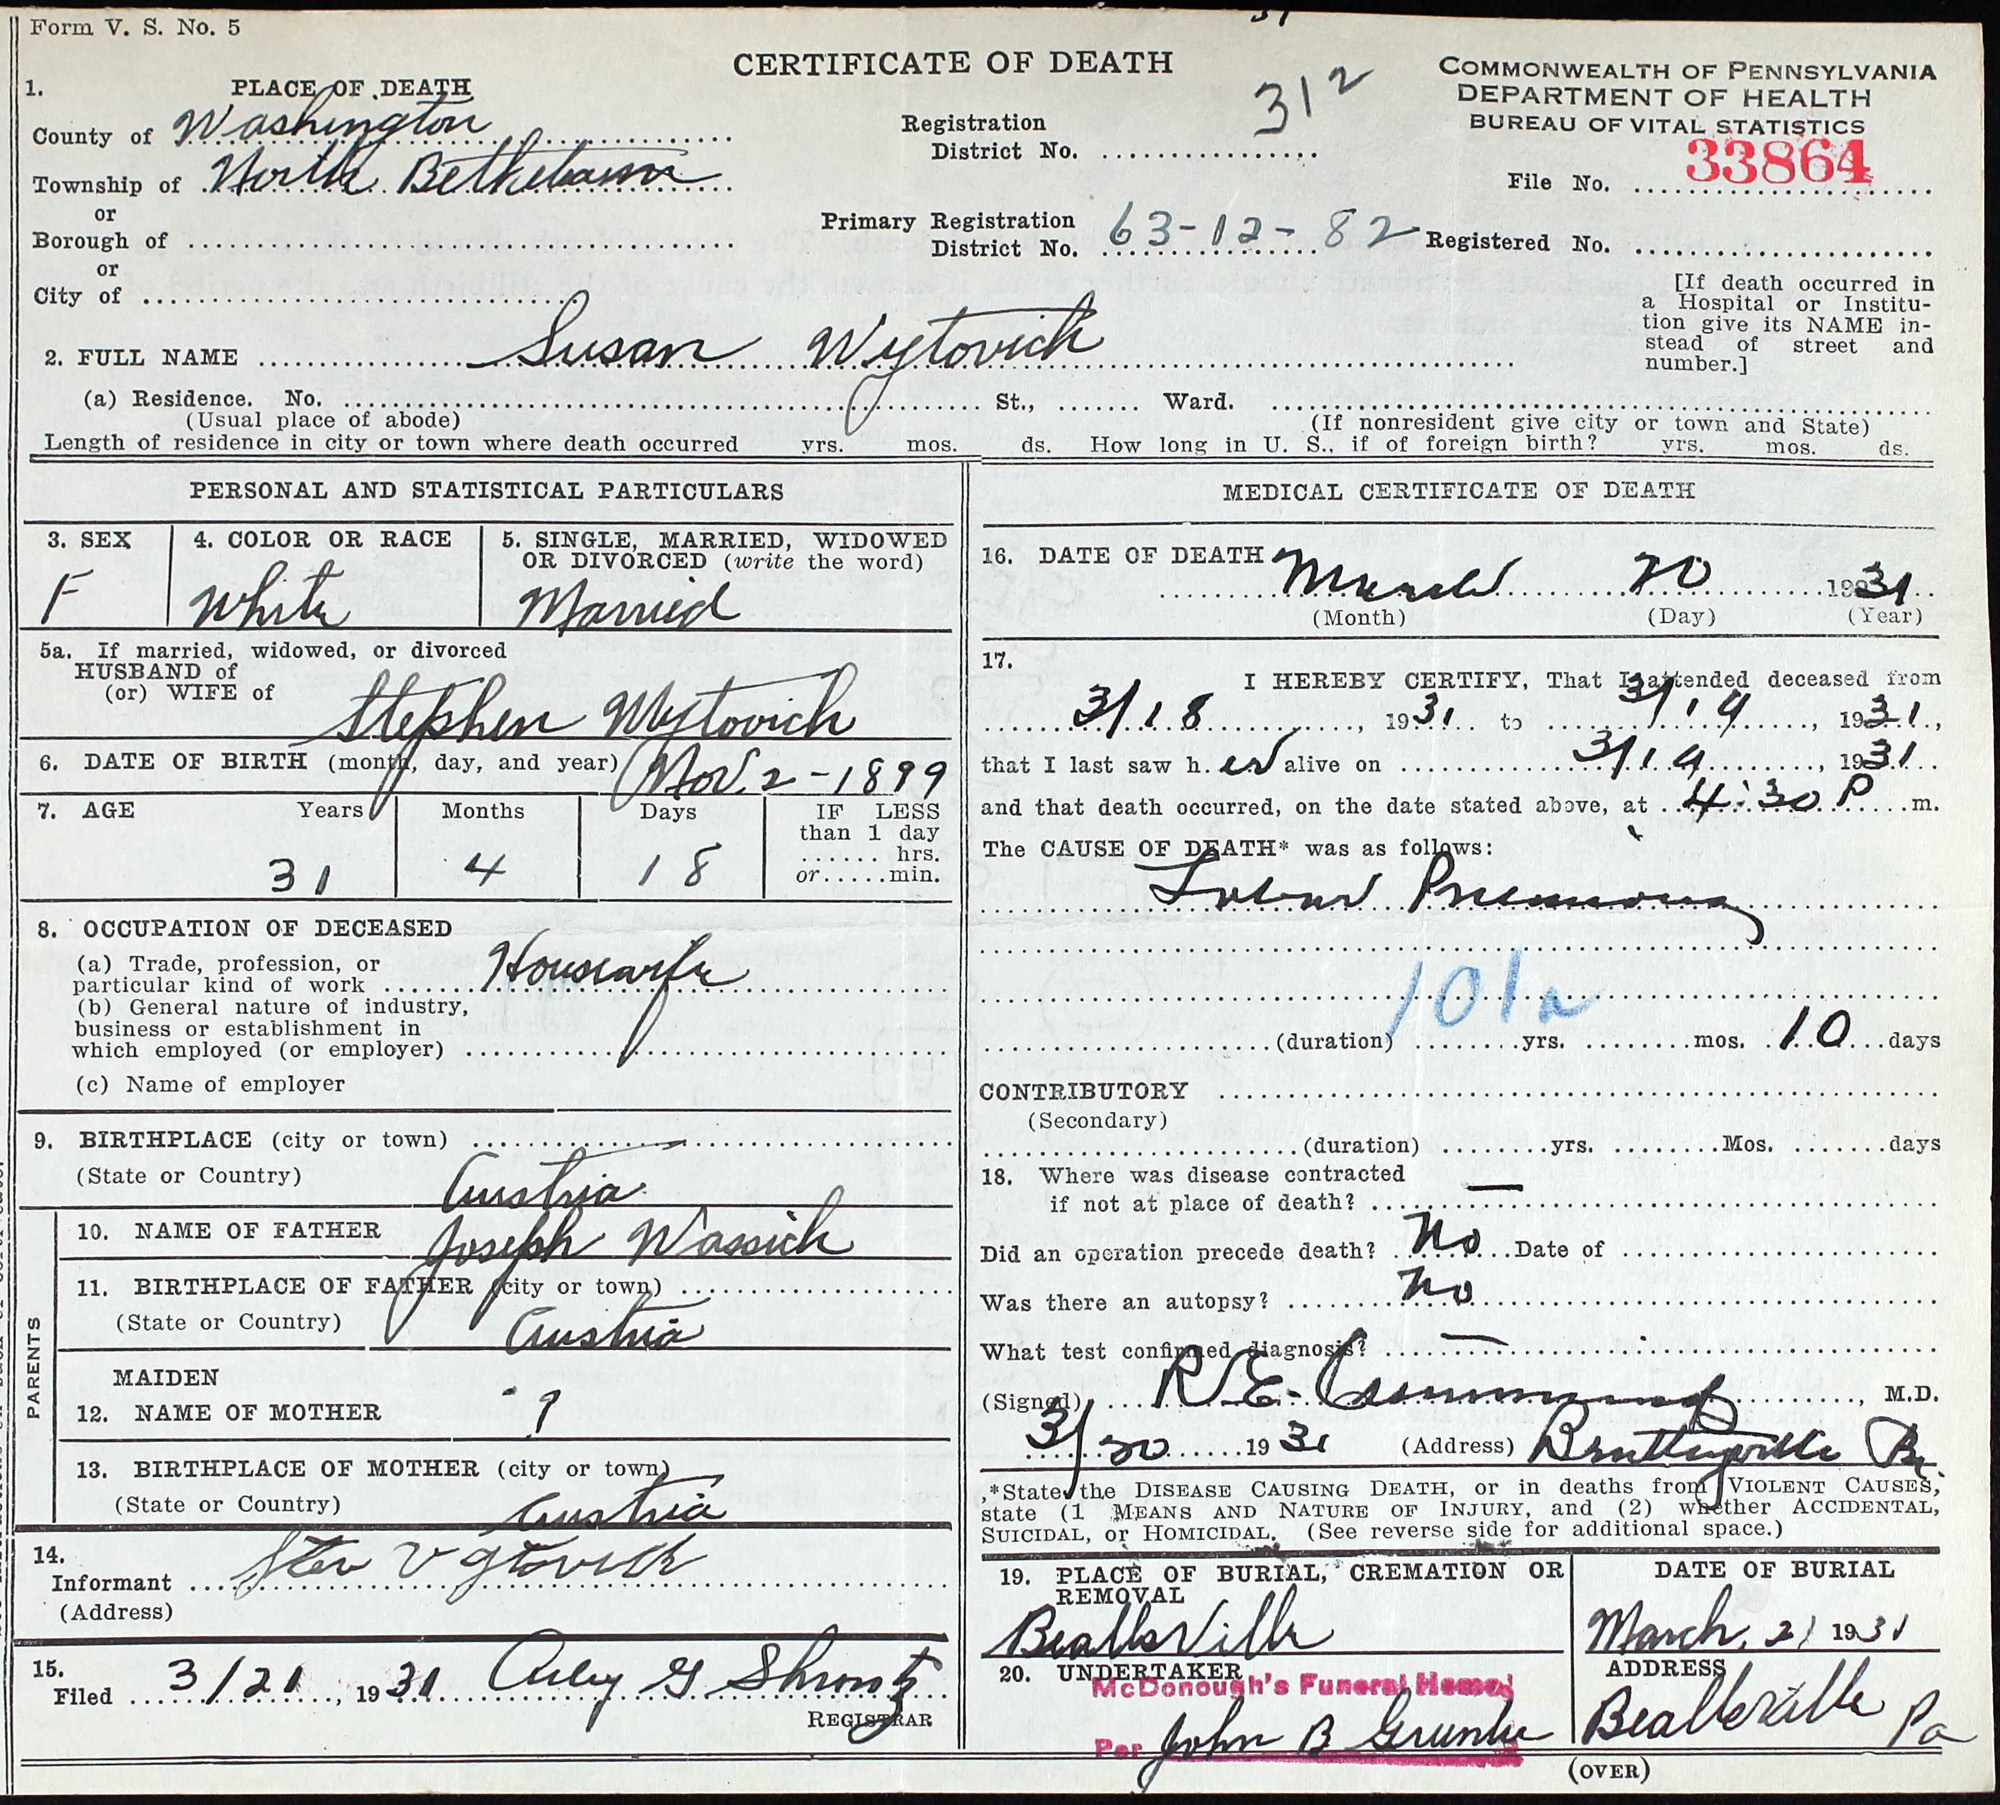 Form V. S. No. 5
CERTIFICATE OF DEATH
COMMONWEALTH OF PENNSYLVANIA
DEPARTMENT OF HEALTH
BUREAU OF VITAL STATISTICS
1. PLACE OF DEATH
County of Washington
Township of North Bethlehem
or
Borough of
or
City of
Registration
District No. 312
Primary Registration
District No. 63-12-82
File No. 33864
Registered No.
[If death occurred in
a Hospital or Institu-
tion give its NAME in-
stead of street and
number.]
2. FULL NAME Susan Wytovich
(a) Residence. No. St., Ward.
(Usual place of abode) (If nonresident give city or town and State)
Length of residence in city or town where death occurred yrs. mos. ds. How long in U. S., if of foreign birth? yrs. mos. ds.
PERSONAL AND STATISTICAL PARTICULARS
3. SEX
F
4. COLOR OR RACE
White
5. SINGLE, MARRIED, WIDOWED
OR DIVORCED (write the word)
Married
5a. If married, widowed, or divorced
HUSBAND of
(or) WIFE of Stephen Wytovich
6. DATE OF BIRTH (month, day, and year) Nov. 2-1899
7. AGE Years Months Days
31 4 18
IF LESS
than 1 day
hrs.
or min.
8. OCCUPATION OF DECEASED
(a) Trade, profession, or
particular kind of work Housewife
(b) General nature of industry,
business or establishment in
which employed (or employer)
(c) Name of employer
9. BIRTHPLACE (city or town)
(State or Country) Austria
PARENTS
10. NAME OF FATHER Joseph Wassich
11. BIRTHPLACE OF FATHER (city or town)
(State or Country) Austria
MAIDEN
12. NAME OF MOTHER ?
13. BIRTHPLACE OF MOTHER (city or town)
(State or Country) Austria
14.
Informant Stev Vytovich
(Address)
15.
Filed 3/21, 1931 G Shrontz
REGISTRAR
MEDICAL CERTIFICATE OF DEATH
16. DATE OF DEATH March 20 1931
(Month) (Day) (Year)
17.
I HEREBY CERTIFY, That I attended deceased from
3/18, 1931 to 3/19, 1931,
that I last saw her alive on 3/19, 1931
and that death occurred, on the date stated above, at 4:30 P m.
The CAUSE OF DEATH* was as follows:
Lobar Pneumonia
101a
(duration) yrs. mos. 10 days
CONTRIBUTORY
(Secondary)
(duration) yrs. Mos. days
18. Where was disease contracted
if not at place of death? —
Did an operation precede death? No Date of
Was there an autopsy? No
What test confirmed diagnosis? —
(Signed) R. E. M.D.
3/20 1931 (Address)
*State the DISEASE CAUSING DEATH, or in deaths from VIOLENT CAUSES,
state (1 MEANS AND NATURE OF INJURY, and (2) whether ACCIDENTAL,
SUICIDAL, or HOMICIDAL. (See reverse side for additional space.)
19. PLACE OF BURIAL, CREMATION OR
REMOVAL
Beallsville
DATE OF BURIAL
March, 21 1931
20. UNDERTAKER
McDonough's Funeral Homes
Per John B
ADDRESS
Beallsville Pa
(OVER)